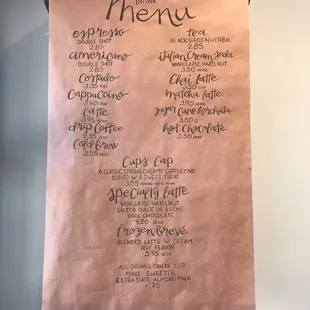 DRINK
Menu
espresso
DOUBLE SHOT
2.85
americano
DOUBLE SHOT
2.85
Cortado
3.35
Cappuccino
3.65
latte
3.95
drip Coffee
2.35
Cold brew
3.55
tea
BLACK, GREEN, HERBAL
2.85
italian Cream Soda
VANILLA, ISE, HAZELNUT
3.50
Chai latte
3.50
Matcha latte
3.95
sugar Cane horchata
3.50
hot Chocolate
3.50
Cups Cap
A CLASSIC, STRONG, CREAMY CAPPUCCINO
SERVED W/ A SWEET TREAT
3.55
specialty latte
VANILLA, ISE, HAZELNUT,
SALTED DULCE DE LECHE
DARK CHOCOLATE
4.20
frozen brevé
BLENDED LATTE W/ CREAM
ANY FLAVOR
5.95
ALL DRINKS CAN BE ICED
MAKE SWEETER
EXTRA SHOT, ALMOND MILK
.75